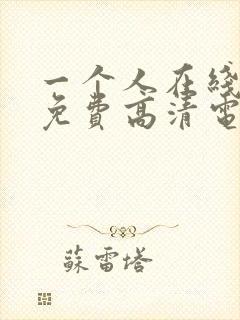 一个人在线
免费高清電
蘇雷塔